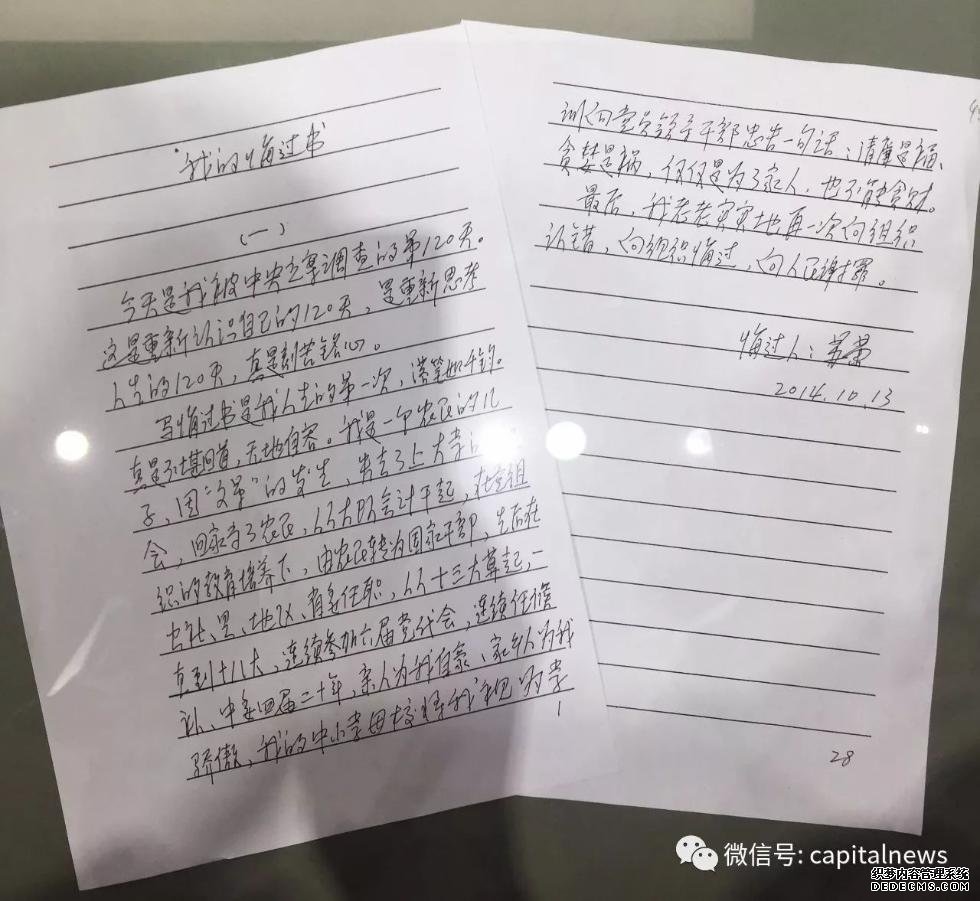 我的悔过书
(一)
今天是我被中央立案调查的第120天。
这是重新认识自己的120天,是重新思考
人生的120天,真是刻苦铭心。
写悔过书是我人生的第一次,落笔如千钧。
真是不堪回首,无地自容。我是一个农民的儿
子,因“文革”的发生,失去了上大学的
会,回家当了农民,从大队会计干起,在党组
织的教育培养下,由农民转为国家干部,先后在
公社、县、地区、省委任职,从十三大算起,一
直到十八大,连续参加六届党代会,连续任候
补、中委四届二十年,亲人为我自豪、家乡人为我
骄傲,我的中小学母校将我视为学
1
训向党员领导干部忠告一句话:清廉是福、
贪婪是祸,仅仅是为了家人,也不能贪财。
最后,我老老实实地再一次向组织
认错,向组织悔过,向人民谢罪。
悔过人:苏荣
2014.10.13
28
微信号: capitalnews
织梦内容管理系统
DEDECMS.COM